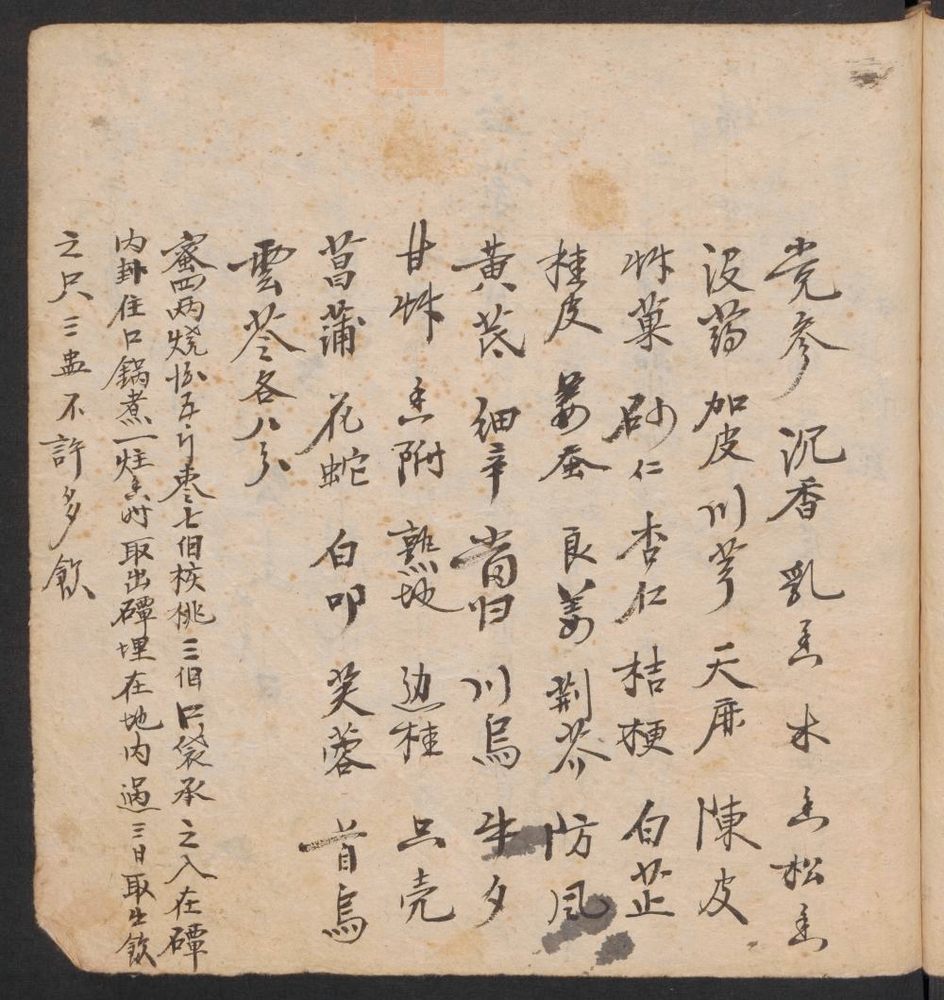 党参 沉香 乳香 木香 松香
没药 加皮 川芎 天麻 陳皮
草菓 砂仁 杏仁 桔梗 白芷
桂皮 姜蚕 良姜 荆芥 防风
黄芪 细辛 当归 川烏 牛夕
甘草 香附 熟地 边桂 只壳
菖蒲 花蛇 白叩 芙蓉 首烏
雲苓各八分
蜜四两烧酒五斤枣七個核桃三個口袋承之入在磹
内卦住口鍋煮一炷香时取出磹埋在地内過三日取出飲
之只三盅不許多飲